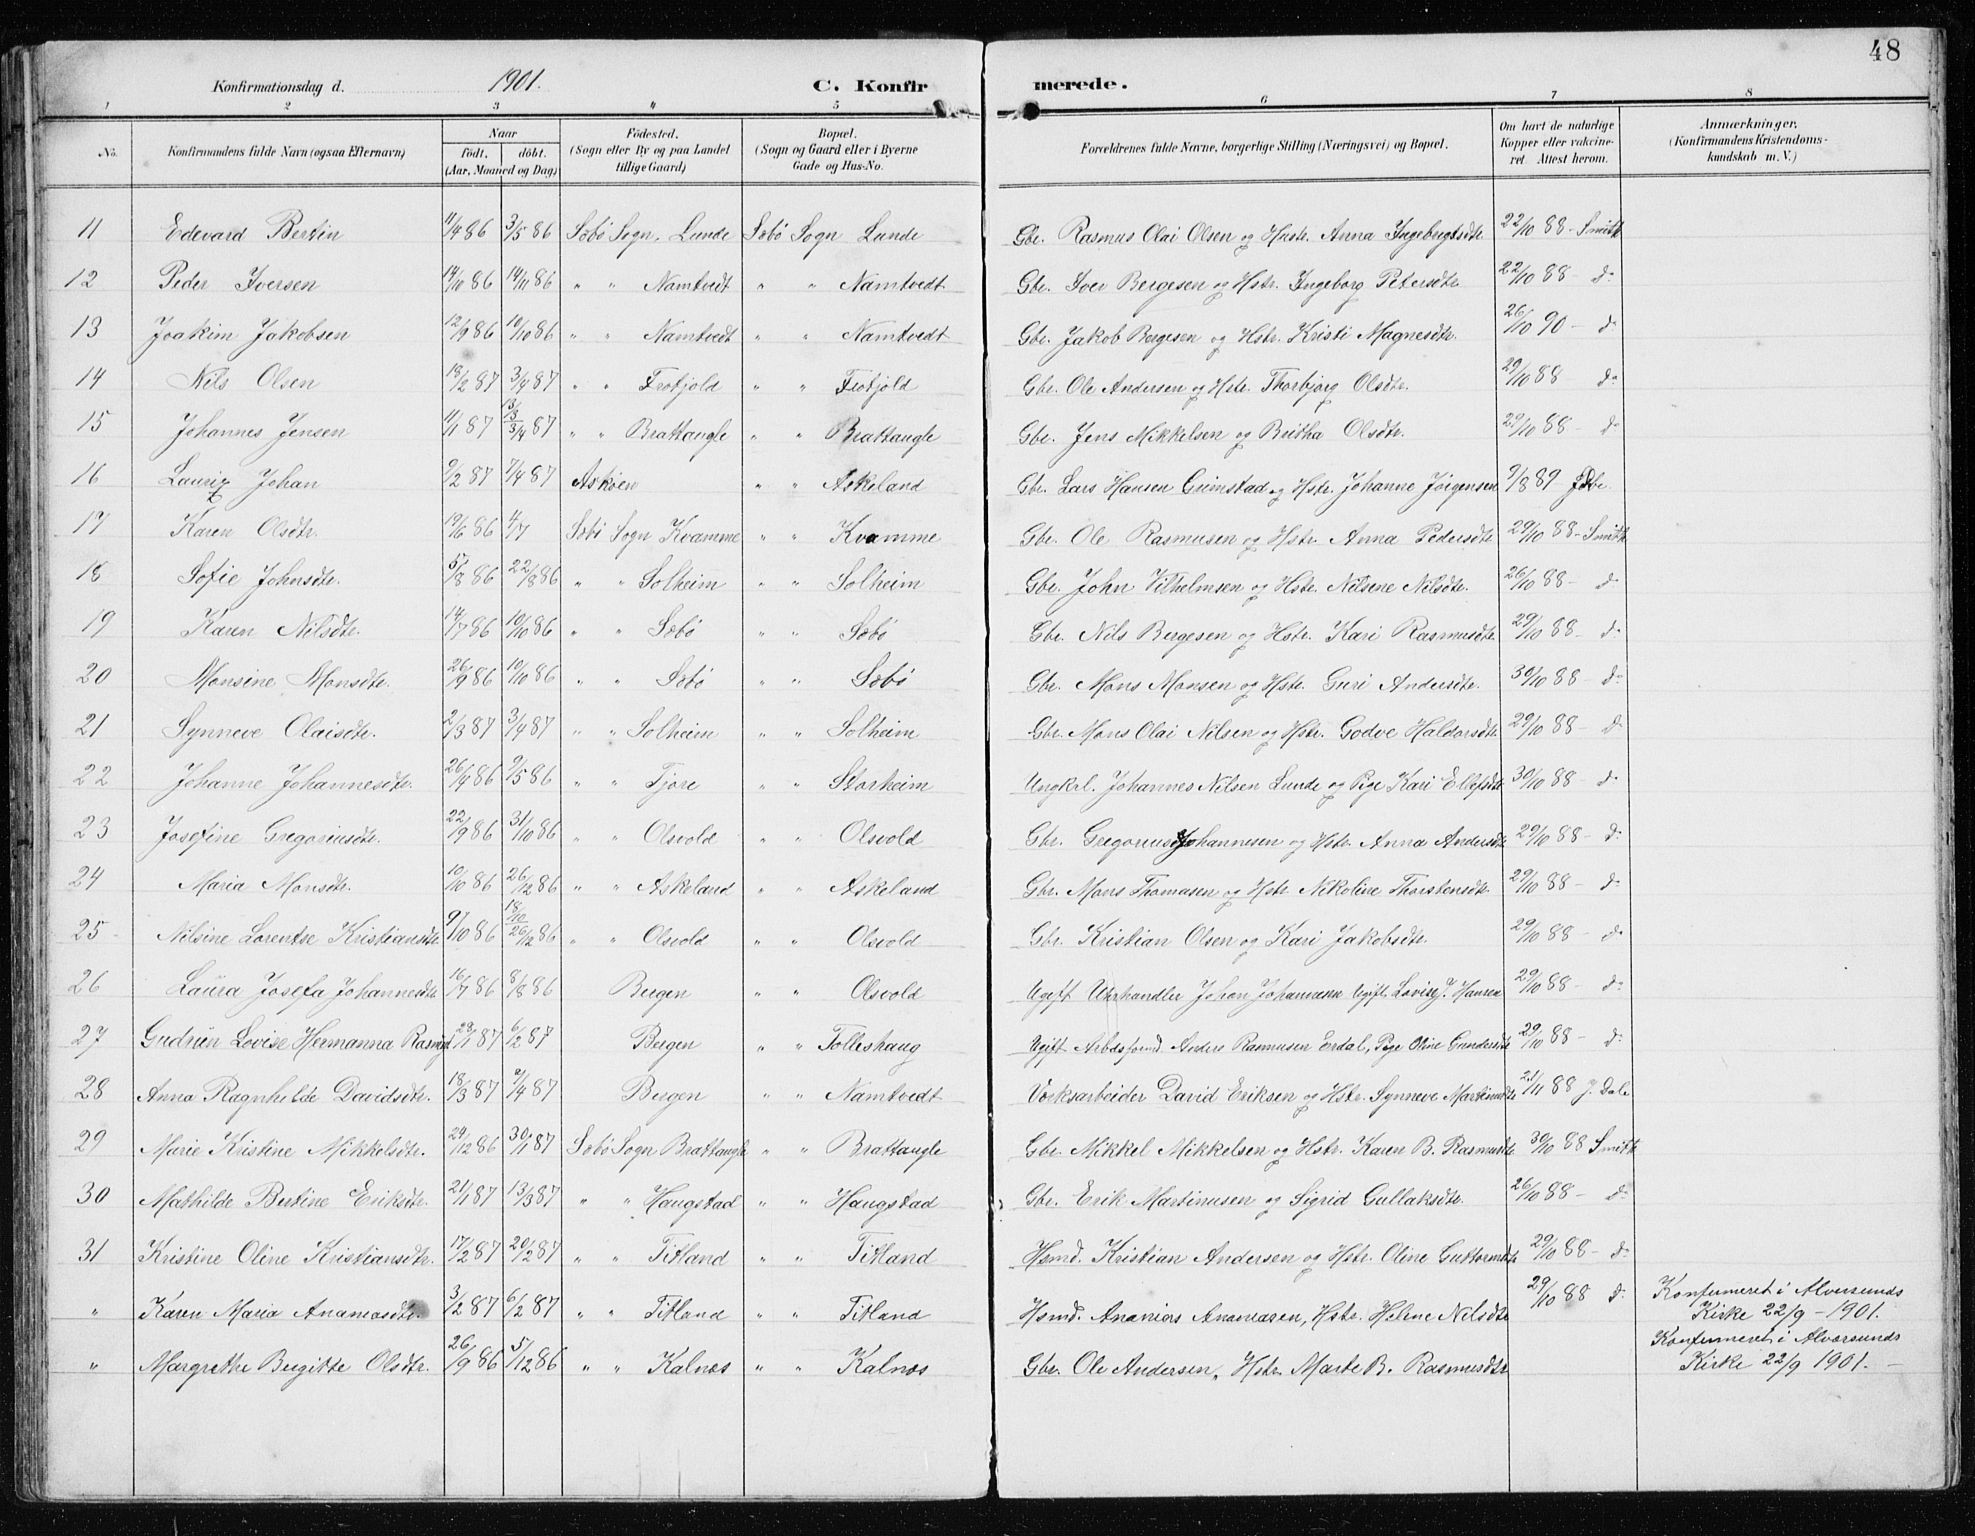 48
Konfirmationsdag d. 1901. C. Konfirmerede.
1 2 3 4 5 6 7 8
No. Konfirmandens fulde Navn (ogsaa Efternavn) Naar født, døbt. (Aar, Maaned og Dag) Fødested. (Sogn eller By og paa Landet tillige Gaard) Bopæl. (Sogn og Gaard eller i Byerne Gade og Hus-No. Forældrenes fulde Navne, borgerlige Stilling (Næringsvei) og Bopæl. Om havt de naturlige Kopper eller vakcineret. Attest herom. Anmærkninger. (Konfirmandens Kristendomskundskab m. V.)
11 Edevard Bertin 11/4 86 3/5 86 Sæbø Sogn. Lunde Sæbø Sogn Lunde Gbr. Rasmus Olai Olsen og Hustr. Anna Ingebrigtsdtr 22/10 88 - Smith
12 Peder Iversen 14/10 86 14/11 86 " " Namtvedt " " Namtvedt Gbr. Iver Bergesen og Hstr. Ingeborg Petersdtr 22/10 88 - do
13 Joakim Jakobsen 12/9 86 10/10 86 " " Namtvedt " " Namtvedt Gbr. Jakob Bergesen og Hstr. Kristi Magnesdtr. 26/10 90 - do
14 Nils Olsen 13/2 87 3/4 87 " " Frotjold " " Frotjold Gbr. Ole Andersen og Hstr. Thorbjørg Olsdtr. 29/10 88 do
15 Johannes Jensen 11/1 87 13/3 3/4 87 " " Brattaugle " " Brattaugle Gbr. Jens Mikkelsen og Britha Olsdtr. 29/10 88 - do
16 Lauriz Johan 9/2 87 7/4 87 Askøen " " Askeland Gbr. Lars Hansen Grimstad og Hstr. Johanne Jørgensen 9/8 89
17 Karen Olsdtr. 19/6 86 4/7 Sæbø Sogn Kvamme " " Kvamme Gbr. Ole Rasmusen og Hstr. Anna Pedersdtr 29/10 88 - Smith
18 Sofie Johnsdtr. 5/8 86 22/8 86 " " Solheim " " Solheim Gbr. John Vilhelmsen og Hstr. Nilsine Nilsdtr. 26/10 88 - do
19 Karen Nilsdtr. 14/7 86 10/10 86 " " Sæbø " " Sæbø Gbr. Nils Bergesen og Hstr. Kari Rasmusdtr. 29/10 88 - do
20 Monsine Monsdtr. 26/9 86 10/10 86 " " Sæbø " " Sæbø Gbr. Mons Monsen og Hstr. Guri Andersdtr. 30/10 88 - do
21 Synneve Olaisdtr. 2/3 87 3/4 87 " " Solheim " " Solheim Gbr. Mons Olai Nilsen og Hstr. Godve Haldorsdtr 29/10 88 - do
22 Johanne Johannesdtr. 26/4 86 9/5 86 " " Fjore " " Storheim Ungkrl. Johannes Nilsen Lunde og Pige Kari Ellefsdtr 30/10 88 - do
23 Josefine Gregoriusdtr. 22/9 86 31/10 86 " " Olsvold " " Olsvold Gbr. Gregorius Johannesen og Hstr. Anna Andersdtr 29/10 88 - do
24 Maria Monsdtr. 10/10 86 26/12 86 " " Askeland " " Askeland Gbr. Mons Thomasen og Hstr. Nikoline Thorstensdtr. 29/10 88 - do
25 Nilsine Lorentse Kristiansdtr 9/10 86 18/10 26/12 86 " " Olsvold " " Olsvold Gbr. Kristian Olsen og Kari Jakobsdtr. 29/10 88 - do
26 Laura Josefa Johannesdtr 16/7 86 8/8 86 Bergen " " Olsvold Ugift Uhrhandler Johan Johannesen Ugift. Lovise J. Hansen 29/10 88 - do
27 Gudrun Lovise Hermanna Rasmusd 23/1 87 6/2 87 Bergen " " Tolleshaug Ugift Arbdsformd. Anders Rasmusen Erdal, Pige Oline Gundersdtr 29/10 88 - do
28 Anna Ragnhilde Davidsdtr. 18/3 87 9/4 87 Bergen " " Namtvedt Værksarbeider David Eriksen og Hstr. Synneve Martinusdtr 21/11 88 J. Dale
29 Marie Kristine Mikkelsdtr. 29/12 86 30/1 87 Sæbø Sogn Brattaugle " " Brattaugle Gbr. Mikkel Mikkelsen og Hstr. Karen B. Rasmusdtr 30/10 88 Smith
30 Mathilde Bertine Eriksdtr. 21/1 87 13/3 87 " " Haugstad " " Haugstad Gbr. Erik Martinusen og Sigrid Gullaksdtr. 26/10 88 - do
31 Kristine Oline Kristiansdtr. 17/2 87 20/2 87 " " Titland " " Titland Hsmd. Kristian Andersen og Hstr. Oline Guttormsdtr 29/10 88 - do
" Karen Maria Ananiasdtr 3/2 87 6/2 87 " " Titland " " Titland Hsmd. Ananias Ananiasen, Hstr. Helene Nilsdtr 29/10 88 do Konfirmeret i Alversunds Kirke 22/9 - 1901.
" Margrethe Bergitte Olsdtr. 26/9 86 5/12 86 " " Kalnæs " " Kalnæs Gbr. Ole Andersen, Hstr. Marte B. Rasmusdtr Konfirmeret i Alversunds Kirke 22/9 1901. -